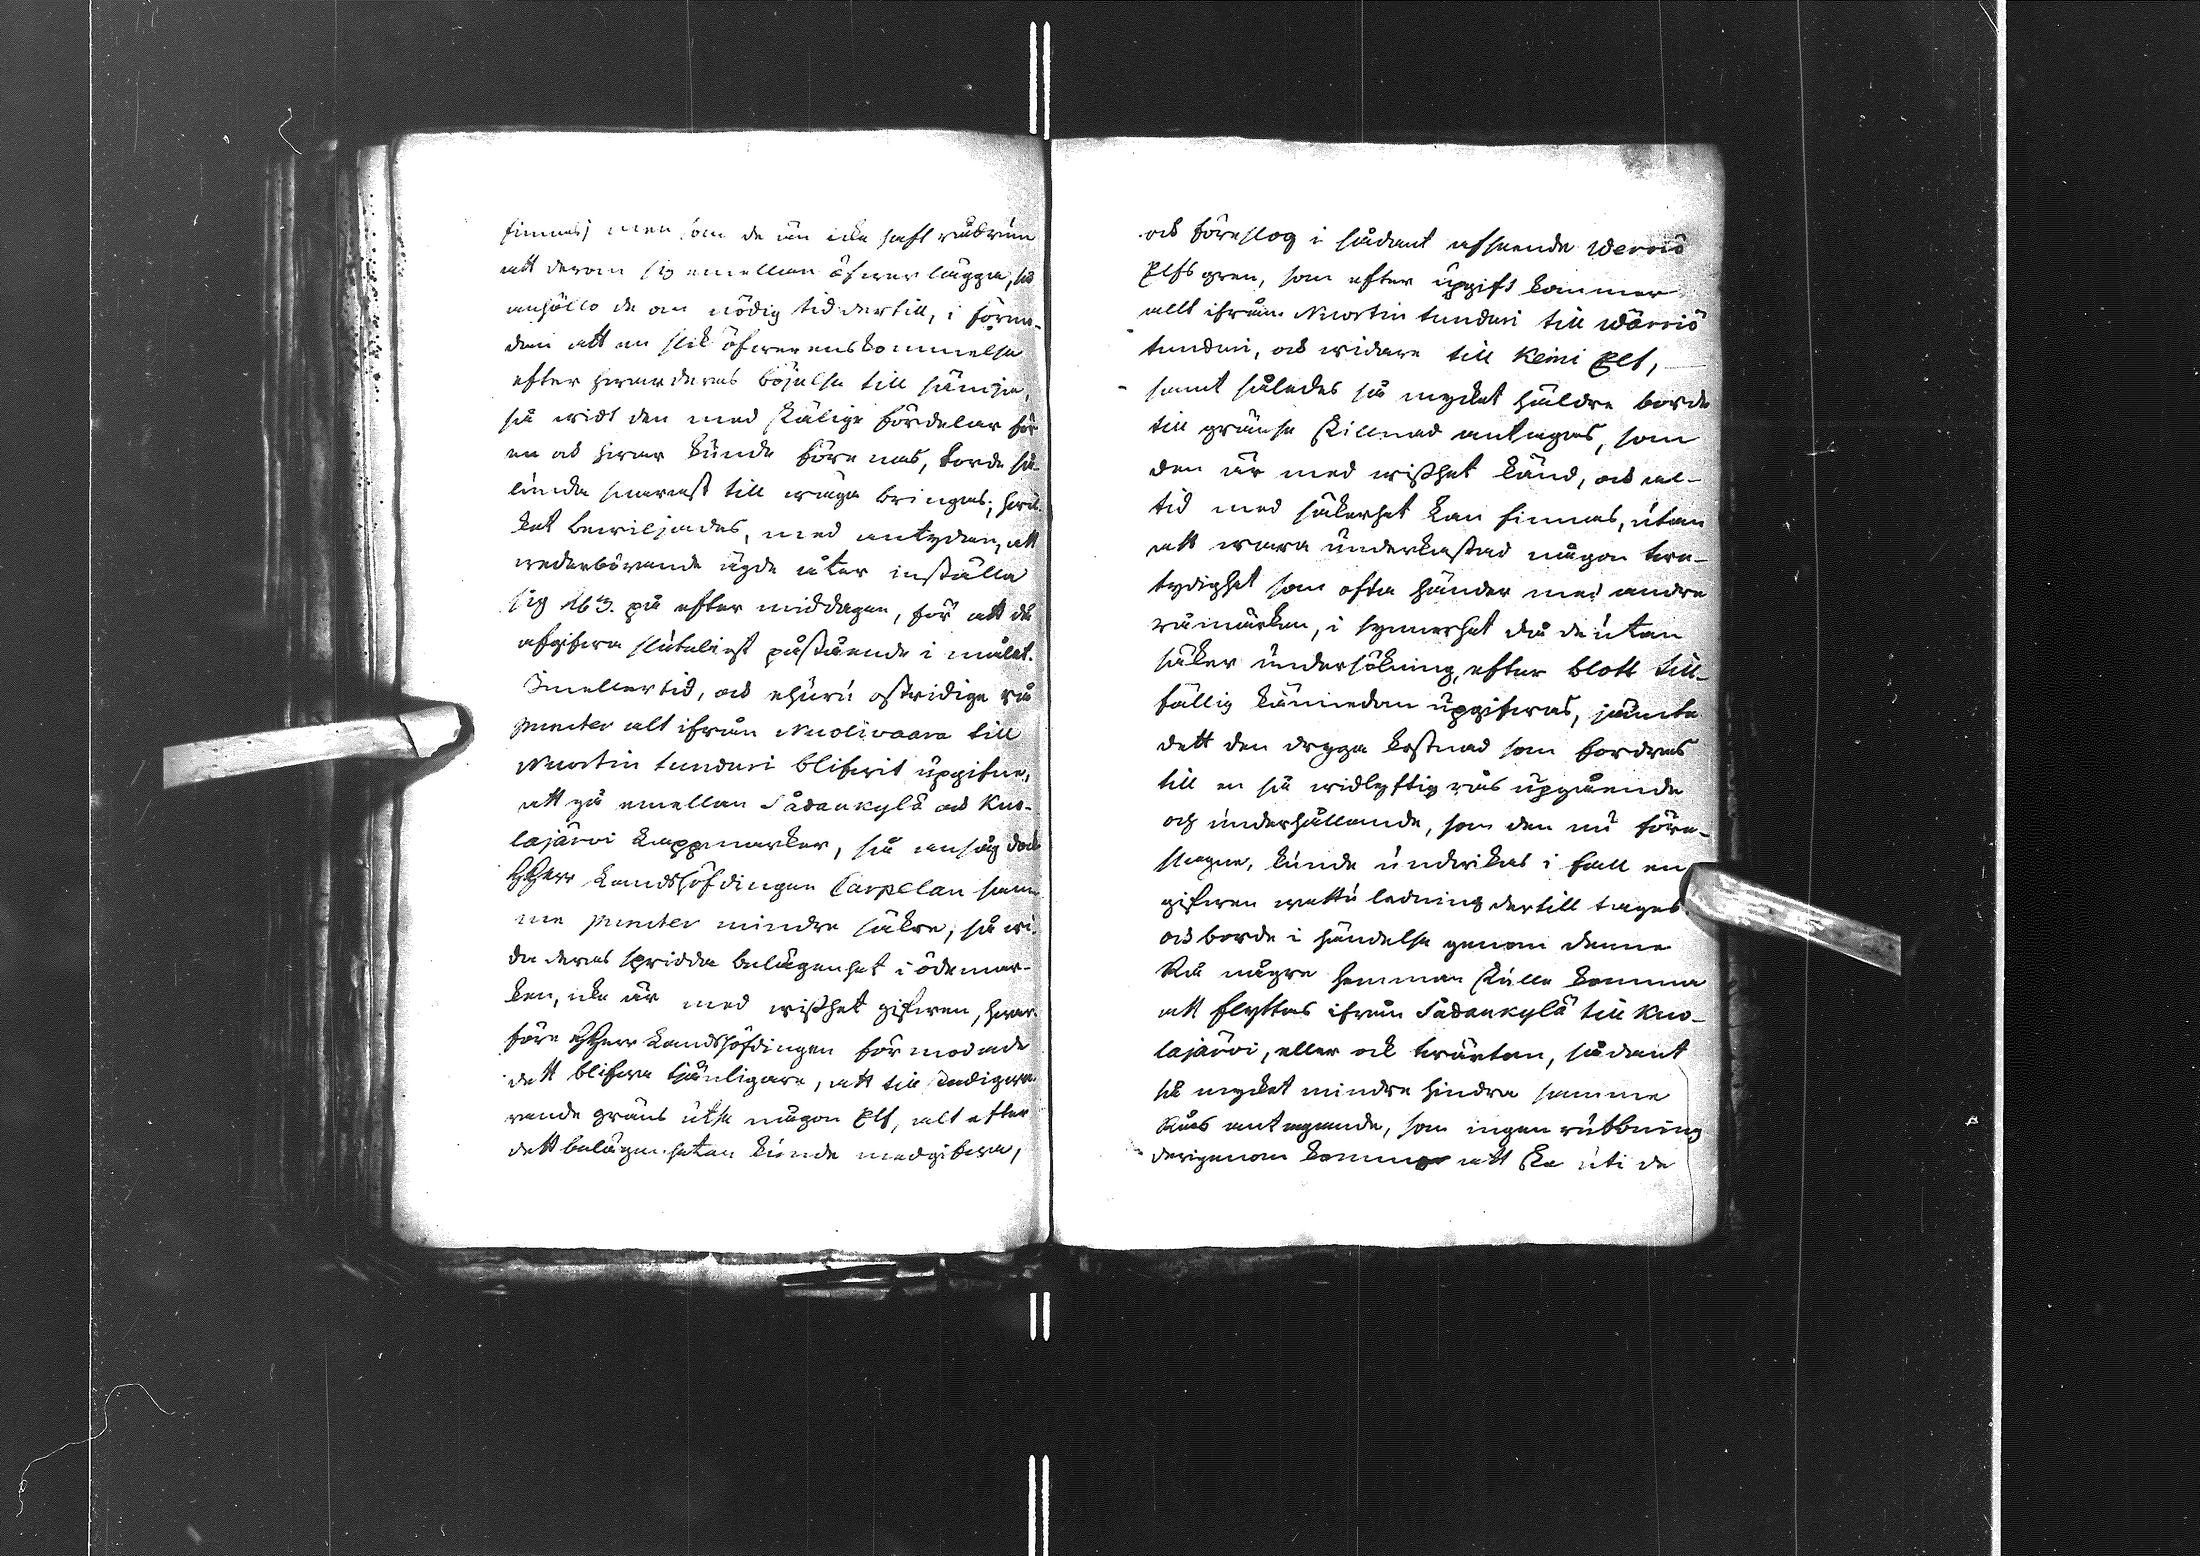 finnas; men som de än icke haft rådrum
att derom sig emellan öfwerlägga, så
anhöllo de om nödig tid dertill, i förmo-
dan att en slik öfwerenskommelse
efter hwarderas böjelse till sämja,
så widt den med skälige fördelar för
en och hwar kunde förenas, torde så-
lunda snarast till wäga bringas; hwil-
ket bewiljades, med antydan, att
wederbörande ägde åter inställa
sig kl 3. på efter middagen, för att då
afgifwa slúteligst påstående i målet.
Imellertid, och ehúrú ostridige rå
puncter alt ifrån Nuolivaara till
Nuortin tunduri blifwit úpgifne,
att gå emellan Sådankylä och Kuo-
lajärvi Lappmarker, så ansåg dock
HHerr Landshöfdingen Carpelan sam-
me puncter mindre säkre, så wi-
da deras spridda belägenhet i ödemar-
ken, icke är med wisshet gifwen, hwar-
före HHerr Landshöfdingen förmodade
dett blifwa tjänligare, att till stadigwa-
rande gräns útse någon Elf, alt efter
dett belägenheten kúnde medgifwa,
och föreslog i sådant afseende Werriö
Elfs gren, som efter úpgift kommer
allt ifrån Nuortin tunduri till Wärriö
tunduri, och widare till Kemi Elf,
samt således så mycket häldre borde
till gränse skillnad antagas, som
den är med wisshet känd, och al-
tid med säkerhet kan finnas, útan
att wara únderkastad någon twe-
tydighet som ofta händer med andre
råmärken, i synnerhet då de útan
säker úndersökning, efter blott till-
fällig kännedom úpgifwas, jämte
dett den dryga kostnad som fordras
till en så widlyftig rås úpgående
och únderhållande, som den nú före-
slagne, kúnde úndwikas i fall en
gifwen wattú ledning dertill tages.
och borde i händelse genom denne
Rå någre hemman skulle komma
att flyttas ifrån Sådankylä till Kuo-
lajärvi, eller ock twärtom, sådant
så mycket mindre hindra samme
Rås antagande, som ingen rúbbning
derigenom kommer att ske úti de